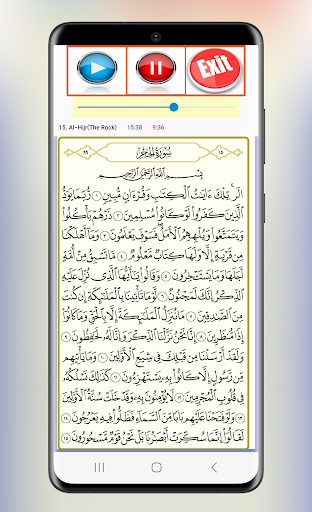 Exit
15. Al-Hijr(The Rock) 15:38 9:36
١٥ سُورَةُ الحِجْرِ ٩٩
بِسْمِ ٱللَّهِ ٱلرَّحْمَٰنِ ٱلرَّحِيمِ
الٓرۚ تِلْكَ ءَايَٰتُ ٱلْكِتَٰبِ وَقُرْءَانٍ مُّبِينٍ ١ رُّبَمَا يَوَدُّ
ٱلَّذِينَ كَفَرُوا۟ لَوْ كَانُوا۟ مُسْلِمِينَ ٢ ذَرْهُمْ يَأْكُلُوا۟
وَيَتَمَتَّعُوا۟ وَيُلْهِهِمُ ٱلْأَمَلُۖ فَسَوْفَ يَعْلَمُونَ ٣ وَمَآ أَهْلَكْنَا
مِن قَرْيَةٍ إِلَّا وَلَهَا كِتَابٌ مَّعْلُومٌ ٤ مَّا تَسْبِقُ مِنْ أُمَّةٍ
أَجَلَهَا وَمَا يَسْتَـْٔخِرُونَ ٥ وَقَالُوا۟ يَٰٓأَيُّهَا ٱلَّذِى نُزِّلَ عَلَيْهِ
ٱلذِّكْرُ إِنَّكَ لَمَجْنُونٌ ٦ لَّوْ مَا تَأْتِينَا بِٱلْمَلَٰٓئِكَةِ إِن كُنتَ
مِنَ ٱلصَّٰدِقِينَ ٧ مَا نُنَزِّلُ ٱلْمَلَٰٓئِكَةَ إِلَّا بِٱلْحَقِّ وَمَا كَانُوٓا۟
إِذًا مُّنظَرِينَ ٨ إِنَّا نَحْنُ نَزَّلْنَا ٱلذِّكْرَ وَإِنَّا لَهُۥ لَحَٰفِظُونَ ٩
وَلَقَدْ أَرْسَلْنَا مِن قَبْلِكَ فِى شِيَعِ ٱلْأَوَّلِينَ ١٠ وَمَا يَأْتِيهِم
مِّن رَّسُولٍ إِلَّا كَانُوا۟ بِهِۦ يَسْتَهْزِءُونَ ١١ كَذَٰلِكَ نَسْلُكُهُۥ
فِى قُلُوبِ ٱلْمُجْرِمِينَ ١٢ لَا يُؤْمِنُونَ بِهِۦۖ وَقَدْ خَلَتْ سُنَّةُ ٱلْأَوَّلِينَ
١٣ وَلَوْ فَتَحْنَا عَلَيْهِم بَابًا مِّنَ ٱلسَّمَآءِ فَظَلُّوا۟ فِيهِ يَعْرُجُونَ ١٤
لَقَالُوٓا۟ إِنَّمَا سُكِّرَتْ أَبْصَٰرُنَا بَلْ نَحْنُ قَوْمٌ مَّسْحُورُونَ ١٥